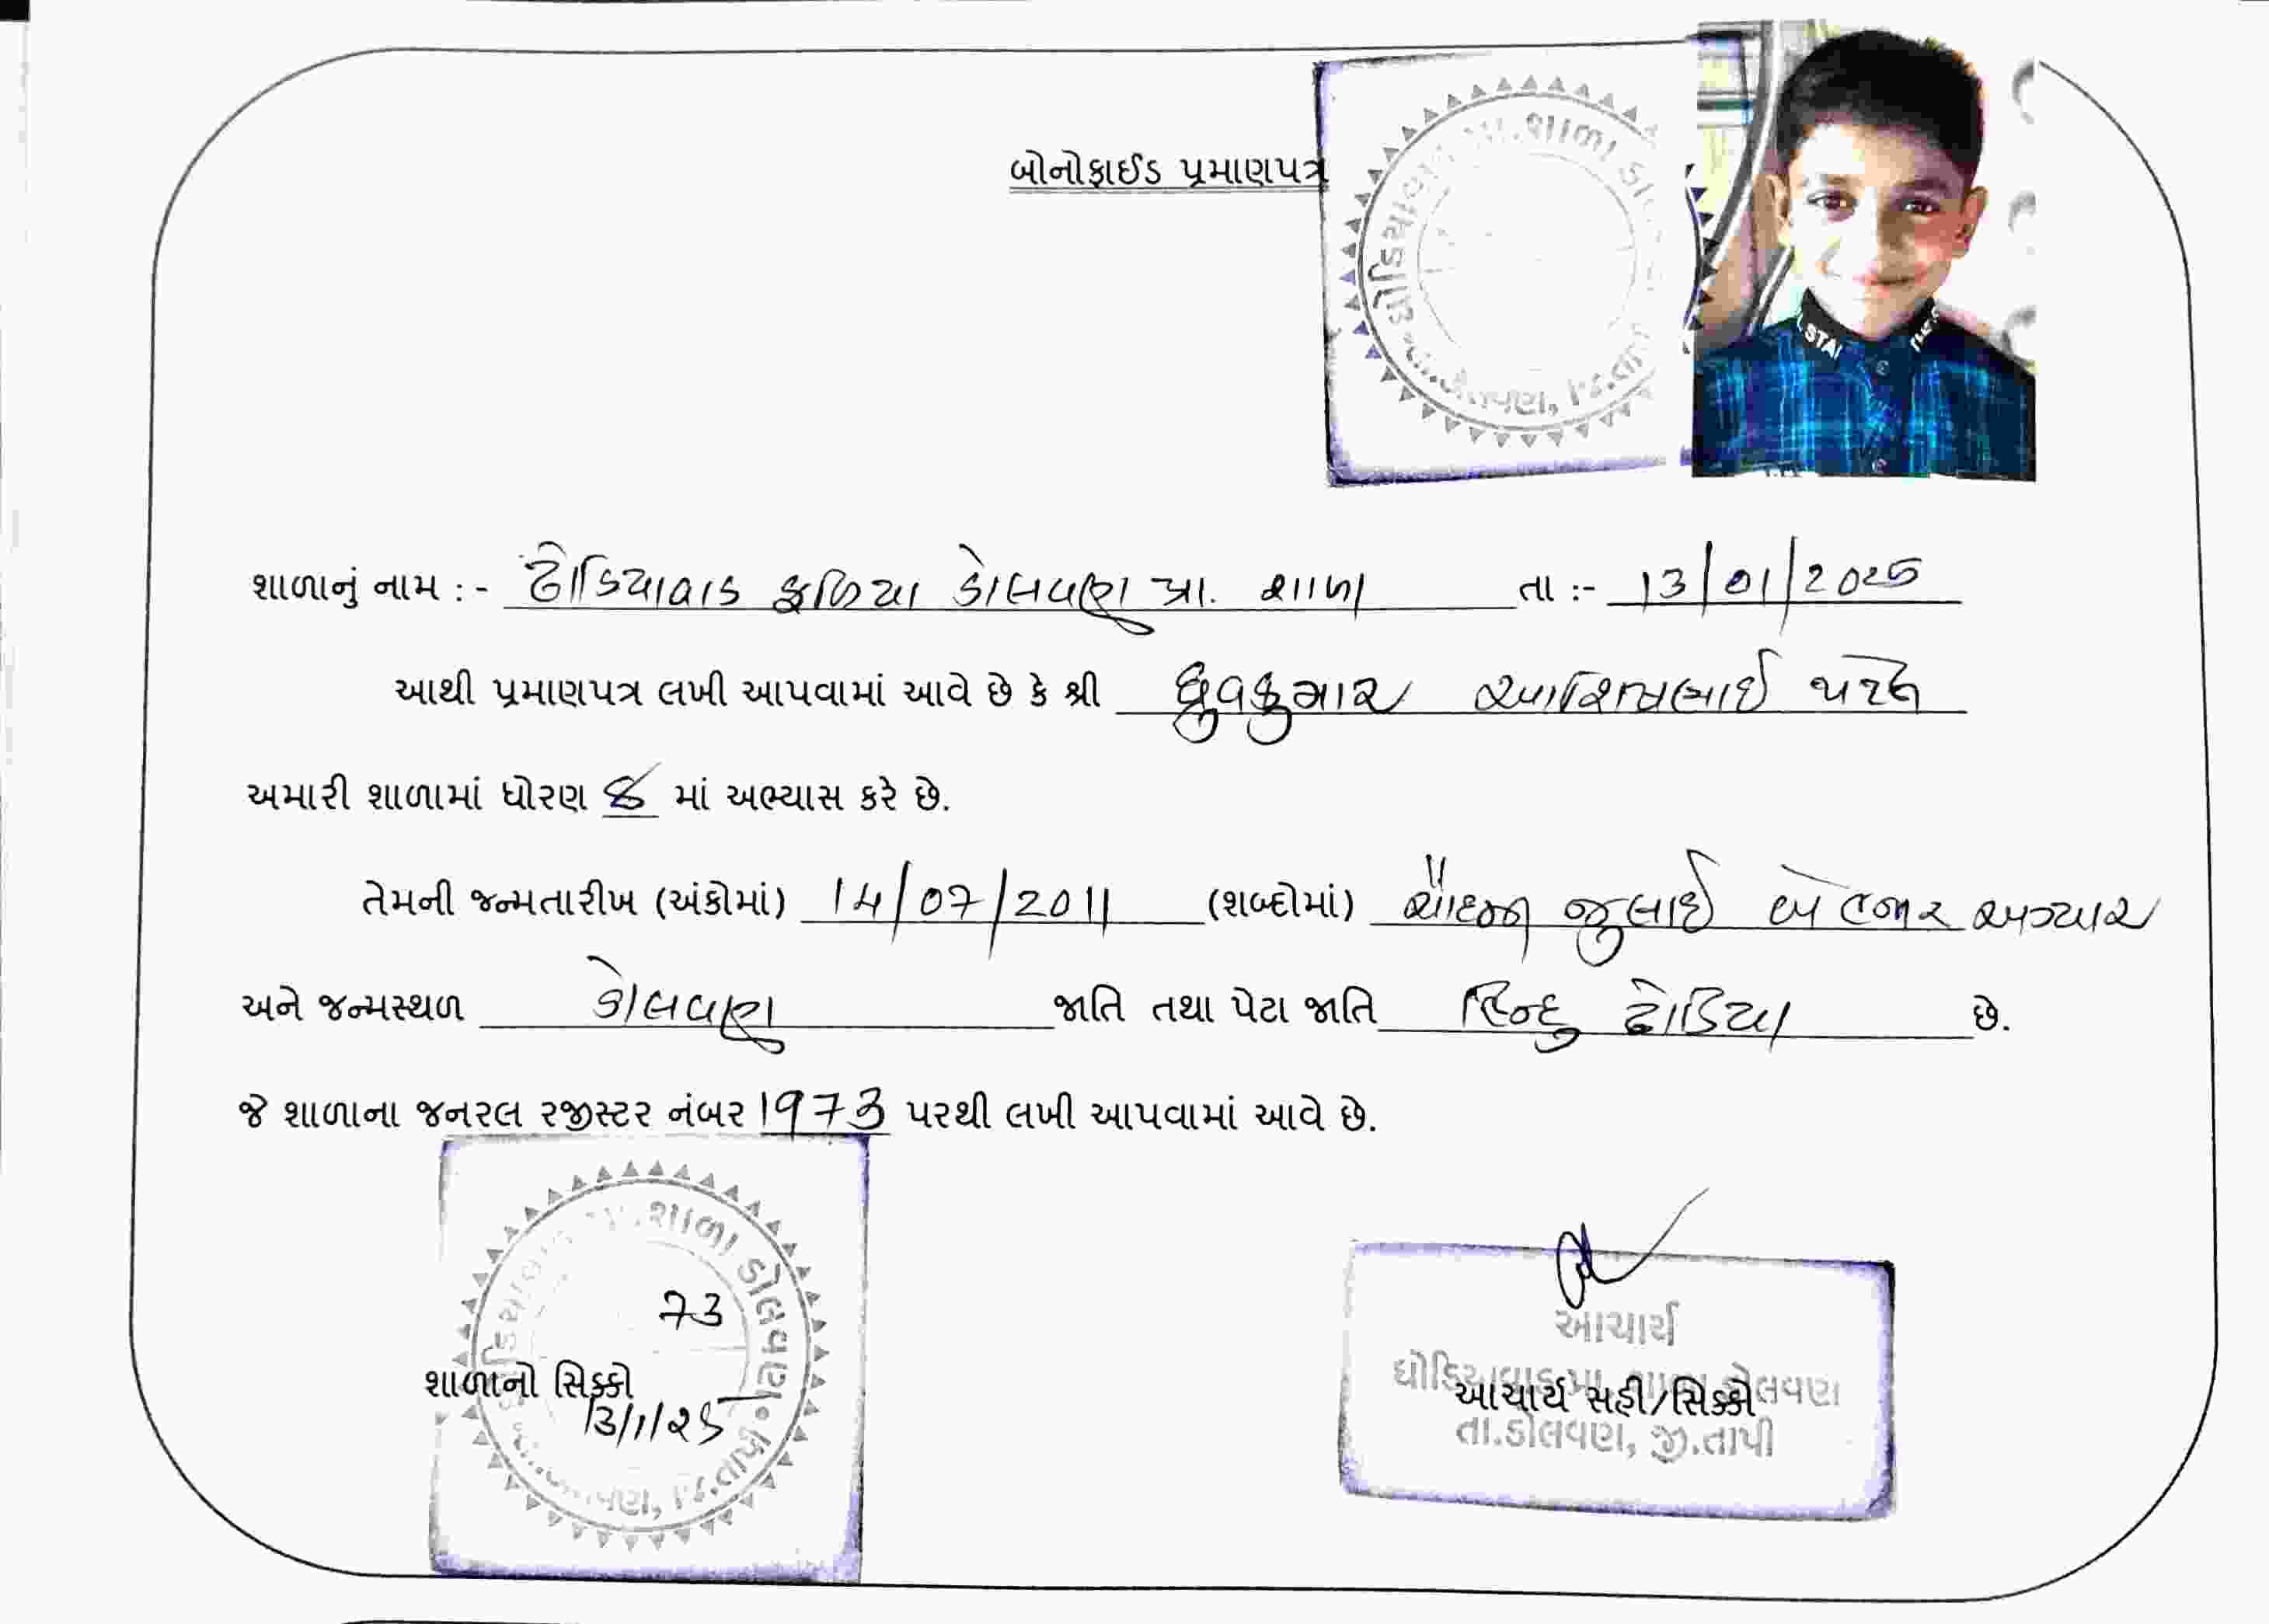 બોનોફાઈડ પ્રમાણપત્ર
શાળાનું નામ :- ઢોડિયાવાડ ફળિયા ડોલવણ પ્રા. શાળા તા :- 13/01/2025
આથી પ્રમાણપત્ર લખી આપવામાં આવે છે કે શ્રી ધ્રુવકુમાર પટેલ
અમારી શાળામાં ધોરણ 8 માં અભ્યાસ કરે છે.
તેમની જન્મતારીખ (અંકોમાં) 14/07/2011 (શબ્દોમાં) ચૌદમી જુલાઈ બે હજાર અગ્યાર
અને જન્મસ્થળ ડોલવણ જાતિ તથા પેટા જાતિ હિન્દુ ઢોડિયા છે.
જે શાળાના જનરલ રજીસ્ટર નંબર 1973 પરથી લખી આપવામાં આવે છે.
73
શાળાનો સિક્કો
13/1/25
આચાર્ય
આચાર્ય સહી/સિક્કો
તા.ડોલવણ, જી.તાપી